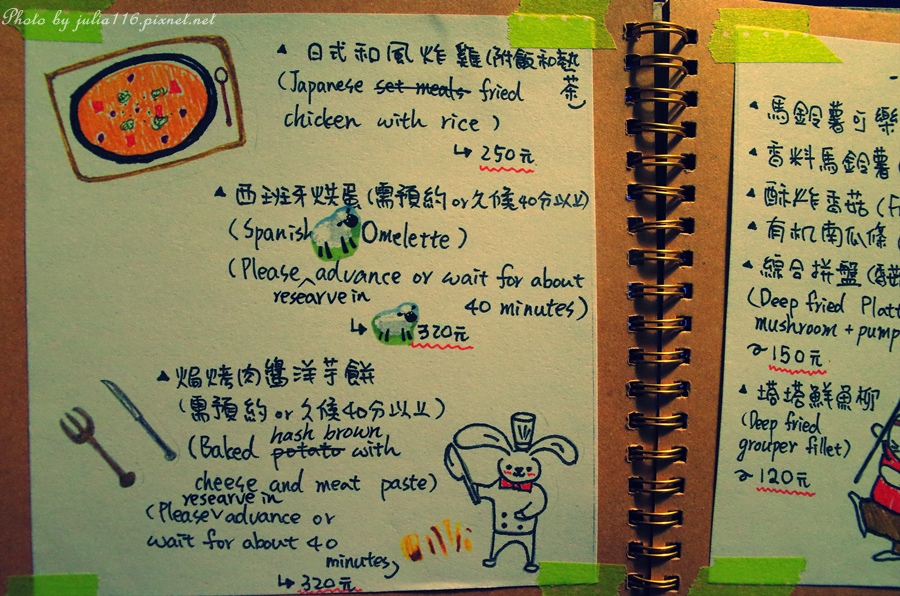 Photo by julia116.pixnet.net
▲ 日式和風炸雞(附飯和熱茶)
(Japanese set meals fried
chicken with rice)
↳ 250元
▲ 西班牙烘蛋(需預約or久候40分以上)
(Spanish Omelette)
(Please researve in advance or wait for about
40 minutes)
↳ 320元
▲ 焗烤肉醬洋芋餅
(需預約or久候40分以上)
(Baked potato hash brown with
cheese and meat paste)
(Please researve in advance or
wait for about 40
minutes)
↳ 320元
▲ 馬鈴薯可樂
▲ 香料馬鈴薯(
▲ 酥炸香菇(F
▲ 有机南瓜條(
▲ 綜合拼盤(
(Deep fried Platt
mushroom + pump
~150元
▲ 塔塔鮮魚柳
(Deep fried
grouper fillet)
~120元